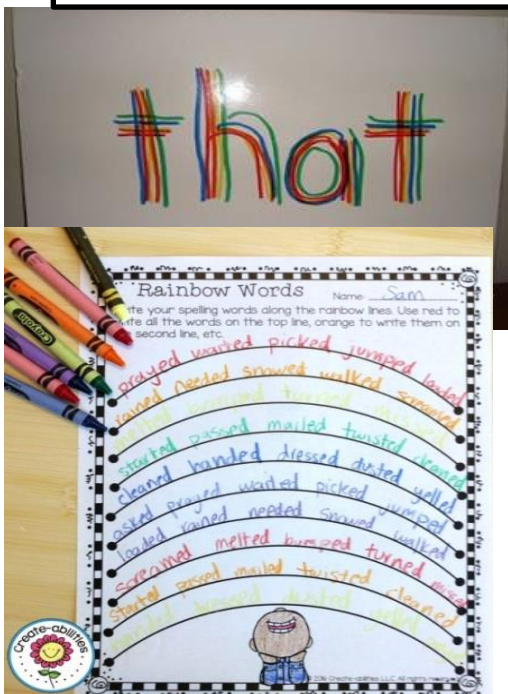 that
Rainbow Words Name: Sam
te your spelling words along the rainbow lines. Use red to
te all the words on the top line, orange to write them on
second line, etc.
prayed waited picked jumped loaded
rained needed snowed walked screamed
melted bumped turned missed
started passed mailed twisted cleaned
cleaned handed dressed dusted yelled
asked prayed waited picked jumped
loaded rained needed snowed walked
screamed melted bumped turned missed
started passed mailed twisted cleaned
handed dressed dusted yelled
Crayola
Create-abilities
© 2016 Create-abilities LLC All rights reserved